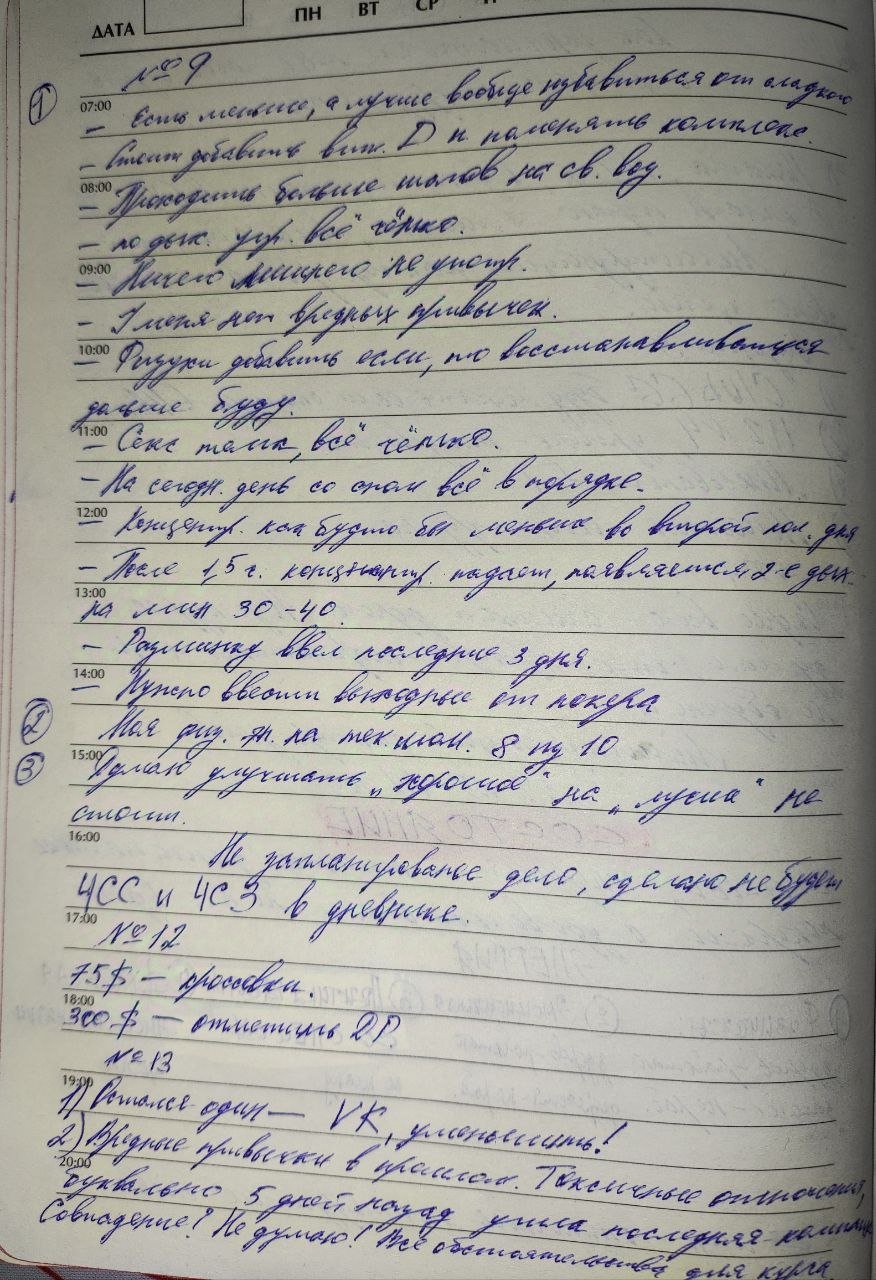 ДАТА ПН ВТ СР
№ 9
① 07:00 – Есть меньше, а лучше вообще избавиться от сладкого
– Стоит добавить вит. D и поменять комплекс.
08:00 – Проходить больше шагов на св. возд.
– по дых. упр. всё чётко.
09:00 – Ничего лишнего не употр.
– У меня нет вредных привычек.
10:00 – Физухи добавить если, то восстанавливаться
дольше буду.
11:00 – Секс тема, всё чётко.
– На сегодн. день со сном всё в порядке.
12:00 – Концентр. как будто бы меньше во второй пол. дня
– После 1,5 ч. концентр. падает, появляется 2-е дых.
13:00 на мин 30-40.
– Разминку ввел последние 3 дня.
14:00 – Нужно ввести выходные от покера
② Моя физ. эн. на тек. мом. 8 из 10
③ 15:00 Думаю улучшать „хорошее" на „лучш" не
стоит.
16:00 Не запланированое дело, сделано не будет
ЧСС и ЧСЗ в дневнике.
17:00 №12
75$ – кроссовки.
18:00 300$ – отметить ДР.
№13
19:00 1) Остался один – VK, уменьшить!
2) Вредные привычки в прошлом. Токсичные отношения,
20:00 буквально 5 дней назад ушла последняя
Совпадение? Не думаю! Все обстоятельства для курса